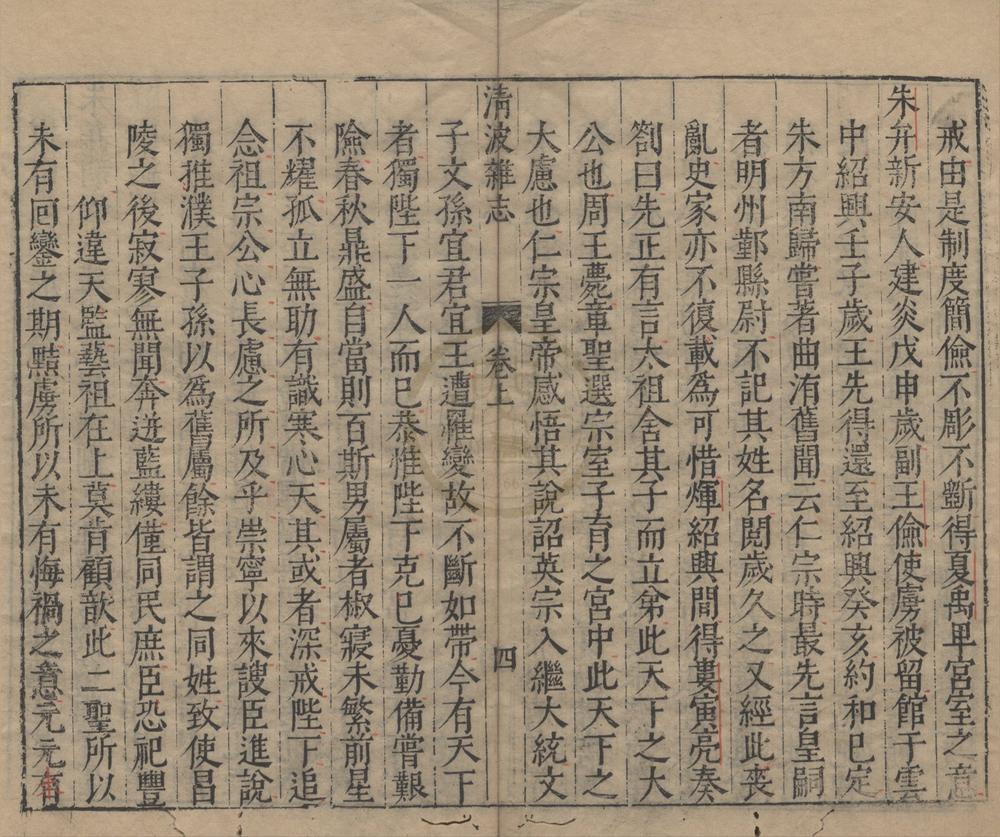 戒由是制度簡儉不彫不斵得夏禹卑宮室之意
朱弁新安人建炎戊申歲副王倫使虜被留館于雲
中紹興壬子歲王先得還至紹興癸亥約和已定
朱方南歸嘗著曲洧舊聞云仁宗時最先言皇嗣
者明州鄞縣尉不記其姓名閱歲久之又經此喪
亂史家亦不復載為可惜煇紹興間得婁寅亮奏
劄曰先正有言太祖舍其子而立弟此天下之大
公也周王薨章聖選宗室子育之宮中此天下之
大慮也仁宗皇帝感悟其說詔英宗入繼大統文
清波雜志 卷上 四
子文孫宜君宜王遭罹變故不斷如帶今有天下
者獨陛下一人而已恭惟陛下克已憂勤備嘗艱
險春秋鼎盛自當則百斯男屬者椒寢未繁前星
不耀孤立無助有識寒心天其或者深戒陛下追
念祖宗公心長慮之所及乎崇寧以來諛臣進說
獨推濮王子孫以為舊屬餘皆謂之同姓致使昌
陵之後寂寥無聞奔迸藍縷僅同民庶臣恐祀豐
仰違天監藝祖在上莫肯顧歆此二聖所以
未有回鑾之期黠虜所以未有悔禍之意元元